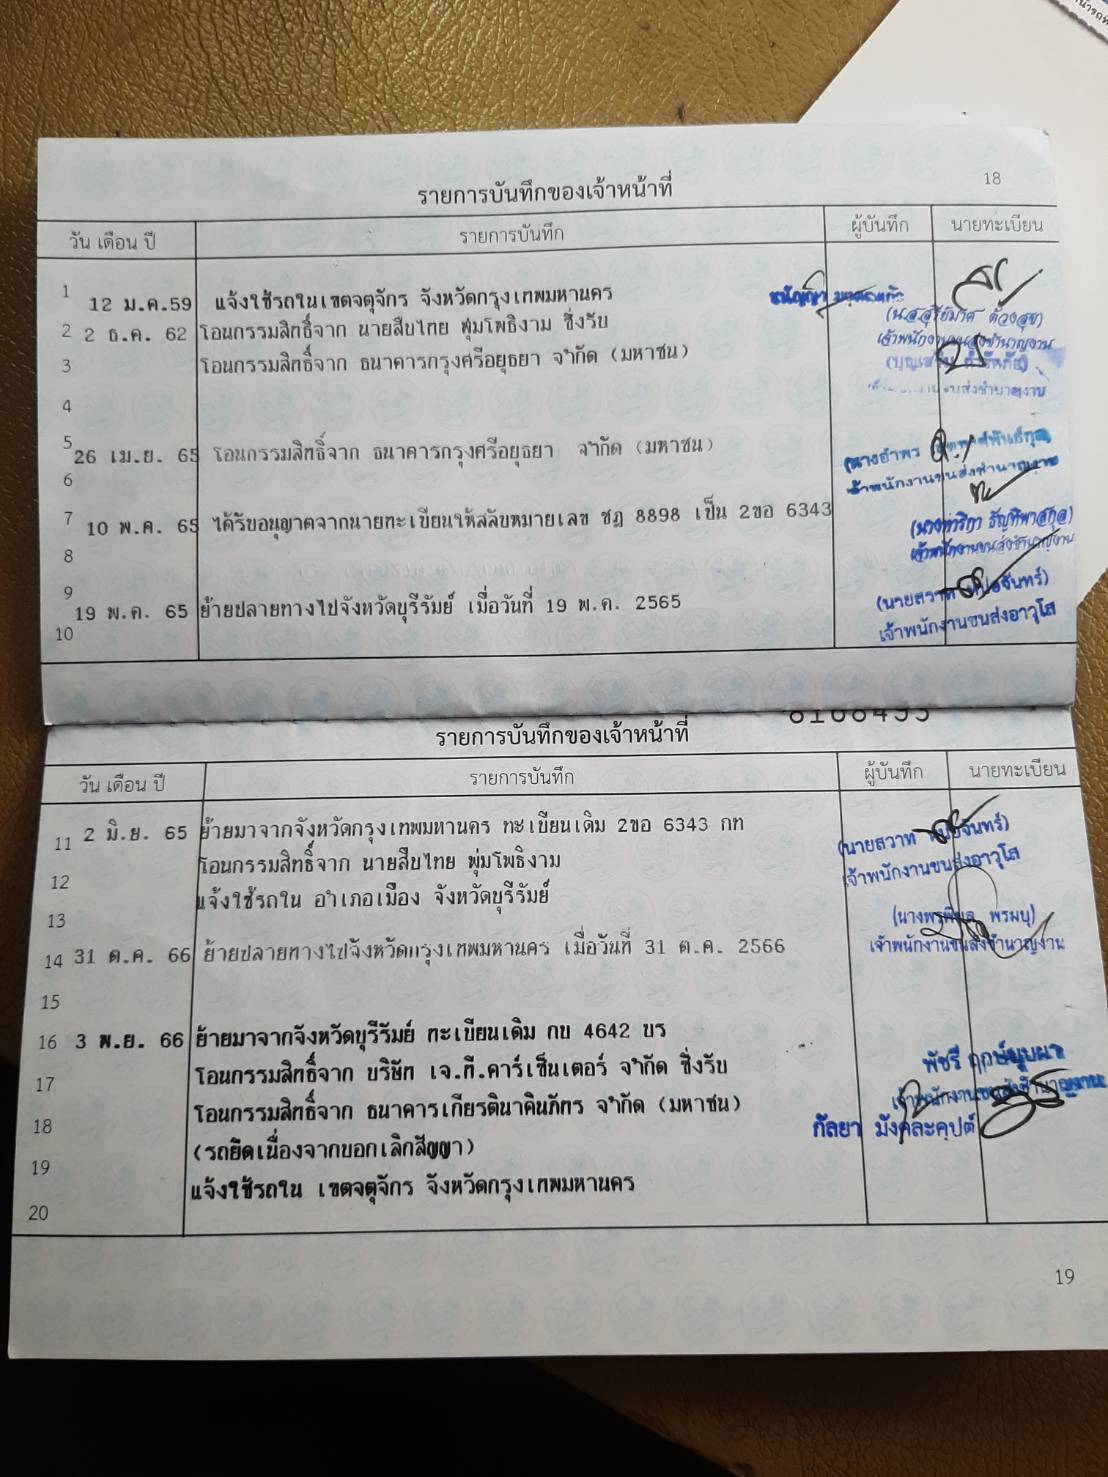 18
รายการบันทึกของเจ้าหน้าที่
วัน เดือน ปี รายการบันทึก ผู้บันทึก นายทะเบียน
1 12 ม.ค.59 แจ้งใช้รถในเขตจตุจักร จังหวัดกรุงเทพมหานคร
2 2 ธ.ค. 62 โอนกรรมสิทธิ์จาก นายสืบไทย พุ่มโพธิงาม ซึ่งรับ
เจ้าพนักงานขนส่งชำนาญงาน
3 โอนกรรมสิทธิ์จาก ธนาคารกรุงศรีอยุธยา จำกัด (มหาชน)
4
5 26 เม.ย. 65 โอนกรรมสิทธิ์จาก ธนาคารกรุงศรีอยุธยา จำกัด (มหาชน)
เจ้าพนักงานขนส่งชำนาญงาน
6
7 10 พ.ค. 65 ได้รับอนุญาตจากนายทะเบียนให้สลับหมายเลข ชฎ 8898 เป็น 2ขอ 6343
เจ้าพนักงานขนส่งชำนาญงาน
8
9 19 พ.ค. 65 ย้ายปลายทางไปจังหวัดบุรีรัมย์ เมื่อวันที่ 19 พ.ค. 2565
(นายสวาท เหมือจันทร์)
เจ้าพนักงานขนส่งอาวุโส
10
รายการบันทึกของเจ้าหน้าที่
วัน เดือน ปี รายการบันทึก ผู้บันทึก นายทะเบียน
11 2 มิ.ย. 65 ย้ายมาจากจังหวัดกรุงเทพมหานคร ทะเบียนเดิม 2ขอ 6343 กท
(นายสวาท เหมือจันทร์)
เจ้าพนักงานขนส่งอาวุโส
12 โอนกรรมสิทธิ์จาก นายสืบไทย พุ่มโพธิงาม
13 แจ้งใช้รถใน อำเภอเมือง จังหวัดบุรีรัมย์
14 31 ต.ค. 66 ย้ายปลายทางไปจังหวัดกรุงเทพมหานคร เมื่อวันที่ 31 ต.ค. 2566
เจ้าพนักงานขนส่งชำนาญงาน
15
16 3 พ.ย. 66 ย้ายมาจากจังหวัดบุรีรัมย์ ทะเบียนเดิม กบ 4642 บร
17 โอนกรรมสิทธิ์จาก บริษัท เจ.ที.คาร์เซ็นเตอร์ จำกัด ซึ่งรับ
เจ้าพนักงานขนส่งชำนาญงาน
18 โอนกรรมสิทธิ์จาก ธนาคารเกียรตินาคินภัทร จำกัด (มหาชน)
กัลยา มังคละคุปต์
19 (รถยึดเนื่องจากบอกเลิกสัญญา)
20 แจ้งใช้รถใน เขตจตุจักร จังหวัดกรุงเทพมหานคร
19